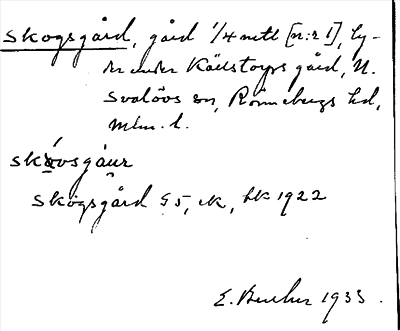 Skogsgård, gård 1/4 mtl [n:r 1], ly-
der under Källstorps gård, N.
Svalövs sn, Rönnebergs hd,
Mlm. l.
skóvsgåur
Skogsgård G5, ek, hk 1922
E. 1933.